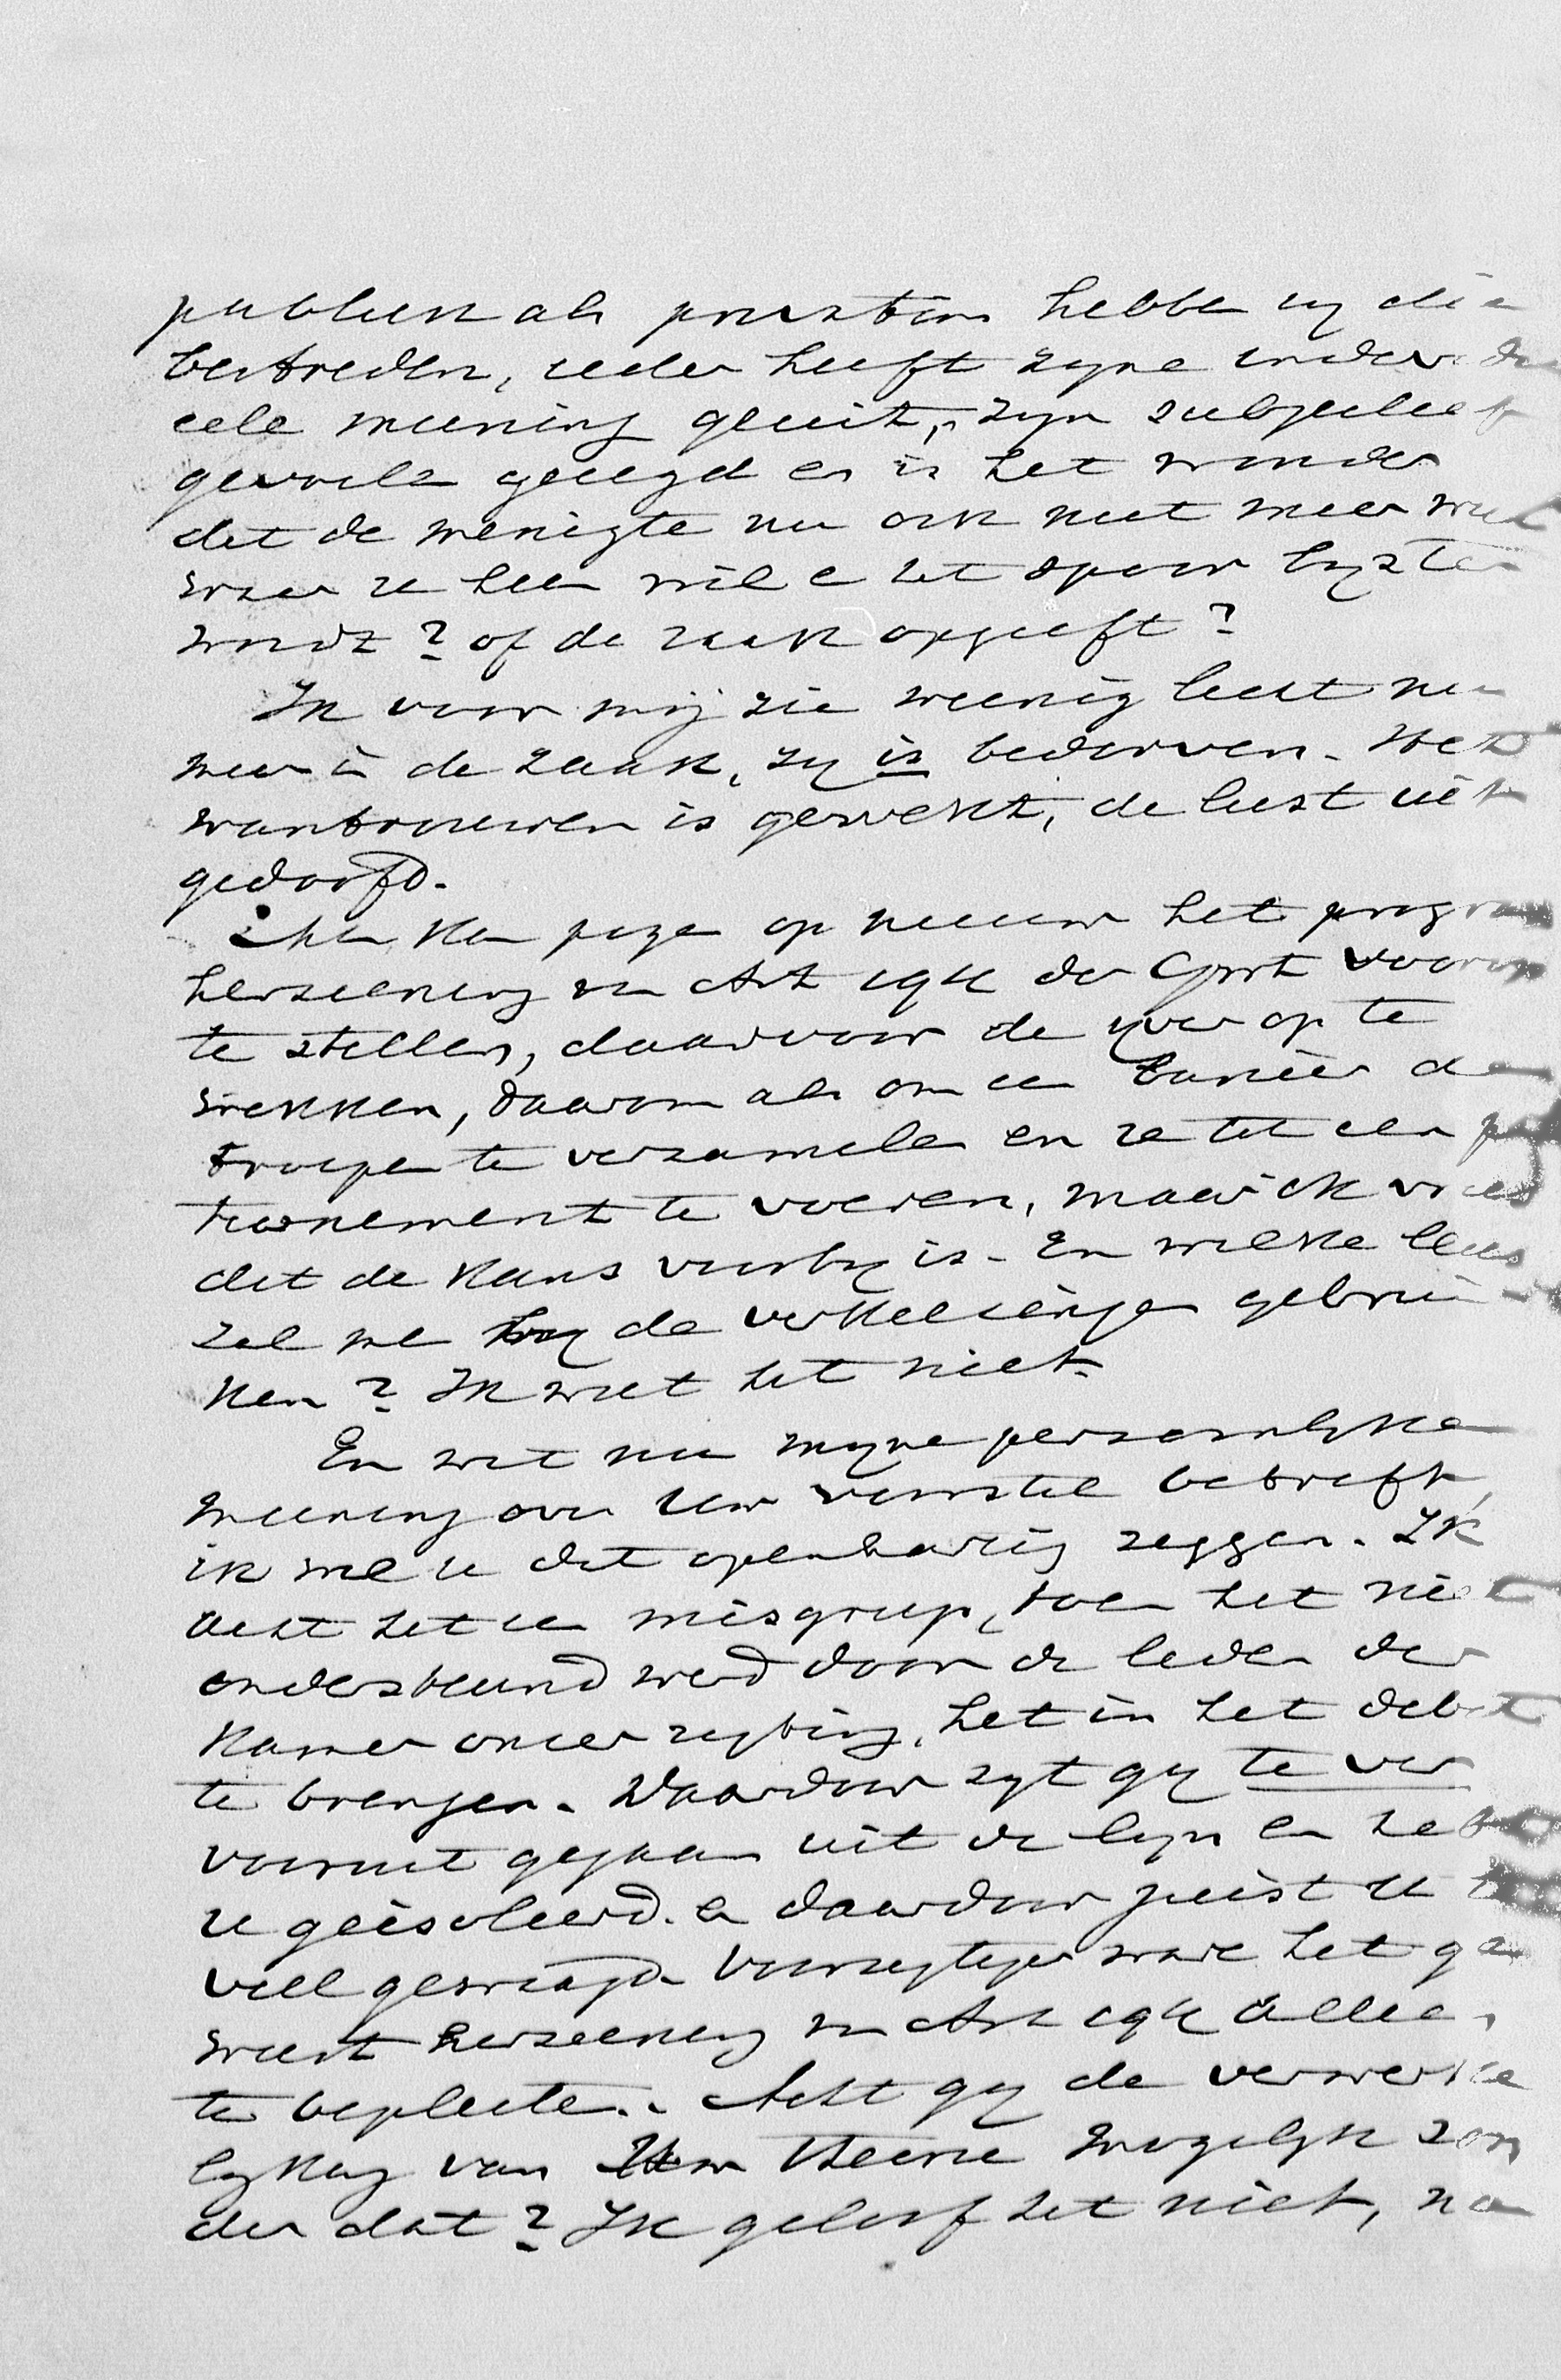 publiek als privatim hebben wy die
betreden, ieder heeft zyne individu
eele meening geuit, zyn subjectief
gevoelen gezegd en is het wonder
dat de menigte nu ook niet meer weet
waar ze heen wil en het spoor byster
wordt? of de zaak opgeeft?
Ik voor mij zie weenig licht nu
meer in de zaak, zy is bedorven. Het
wantrouwen is gewekt, de lust uit
gedoofd.
Men kan pogen op nieuw het program
herziening van Art 194 der Grwt voorop
te stellen, daarvoor de yver op te
wekken, daarom als om een banier de
troepen te verzamelen en ze tot een
tionnement te voeren, maar ik vrees
dat de kans voorby is. En welke leus
zal men by de verkiezingen gebrui
ken? Ik weet het niet.
En wat nu myne persoonlyke
meening over Uw voorstel betreft,
ik wil u dat openhartig zeggen. Ik
acht het een misgreep, toen het niet
ondersteund werd door de leden der
Kamer onzer rigting, het in het debat
te brengen. Daardoor zyt gy te ver
vooruit gegaan uit de lyn en hebt
u geïsoleerd. en daardoor juist u te
veel gewaagd. Voorzigtiger ware het ge
weest herziening van Art 194 alleen
te bepleiten. Acht gy de verwerke
lyking van Uw theorie mogelyk zon
der dat? Ik geloof het niet, na